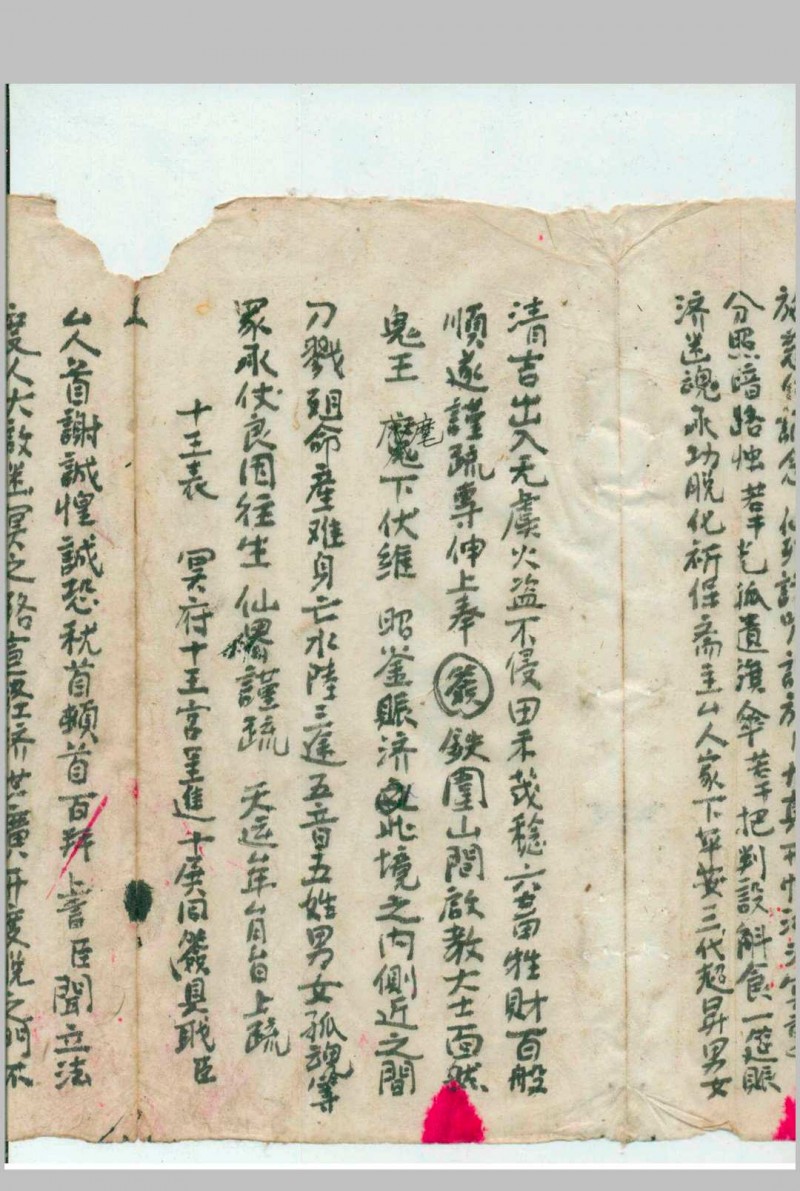 分照暗路烛若干乞孤遺旗伞若干把判設斛食一筵賑
濟迷魂永功脱化祈保斋主厶人家下平安三代超昇男女
清吉出入无虞火盗不侵田禾茂稔六畜牲財百般
順遂謹疏專伸上奉 簽 鉄圍山間啟教大士面然
鬼王 麾下伏维 昭鉴賑济此境之内側近之間
刀戮殂命產难身亡水陸三途五音五姓男女孤魂等
眾承伏良因往生仙界謹疏 天运年月日上疏
十王表 冥府十王宫呈進十處同簽具职臣
厶人首謝誠惶誠恐稽首頓首百拜上書臣聞立法
度人大啟迷冥之路 济世廣开度脱之門